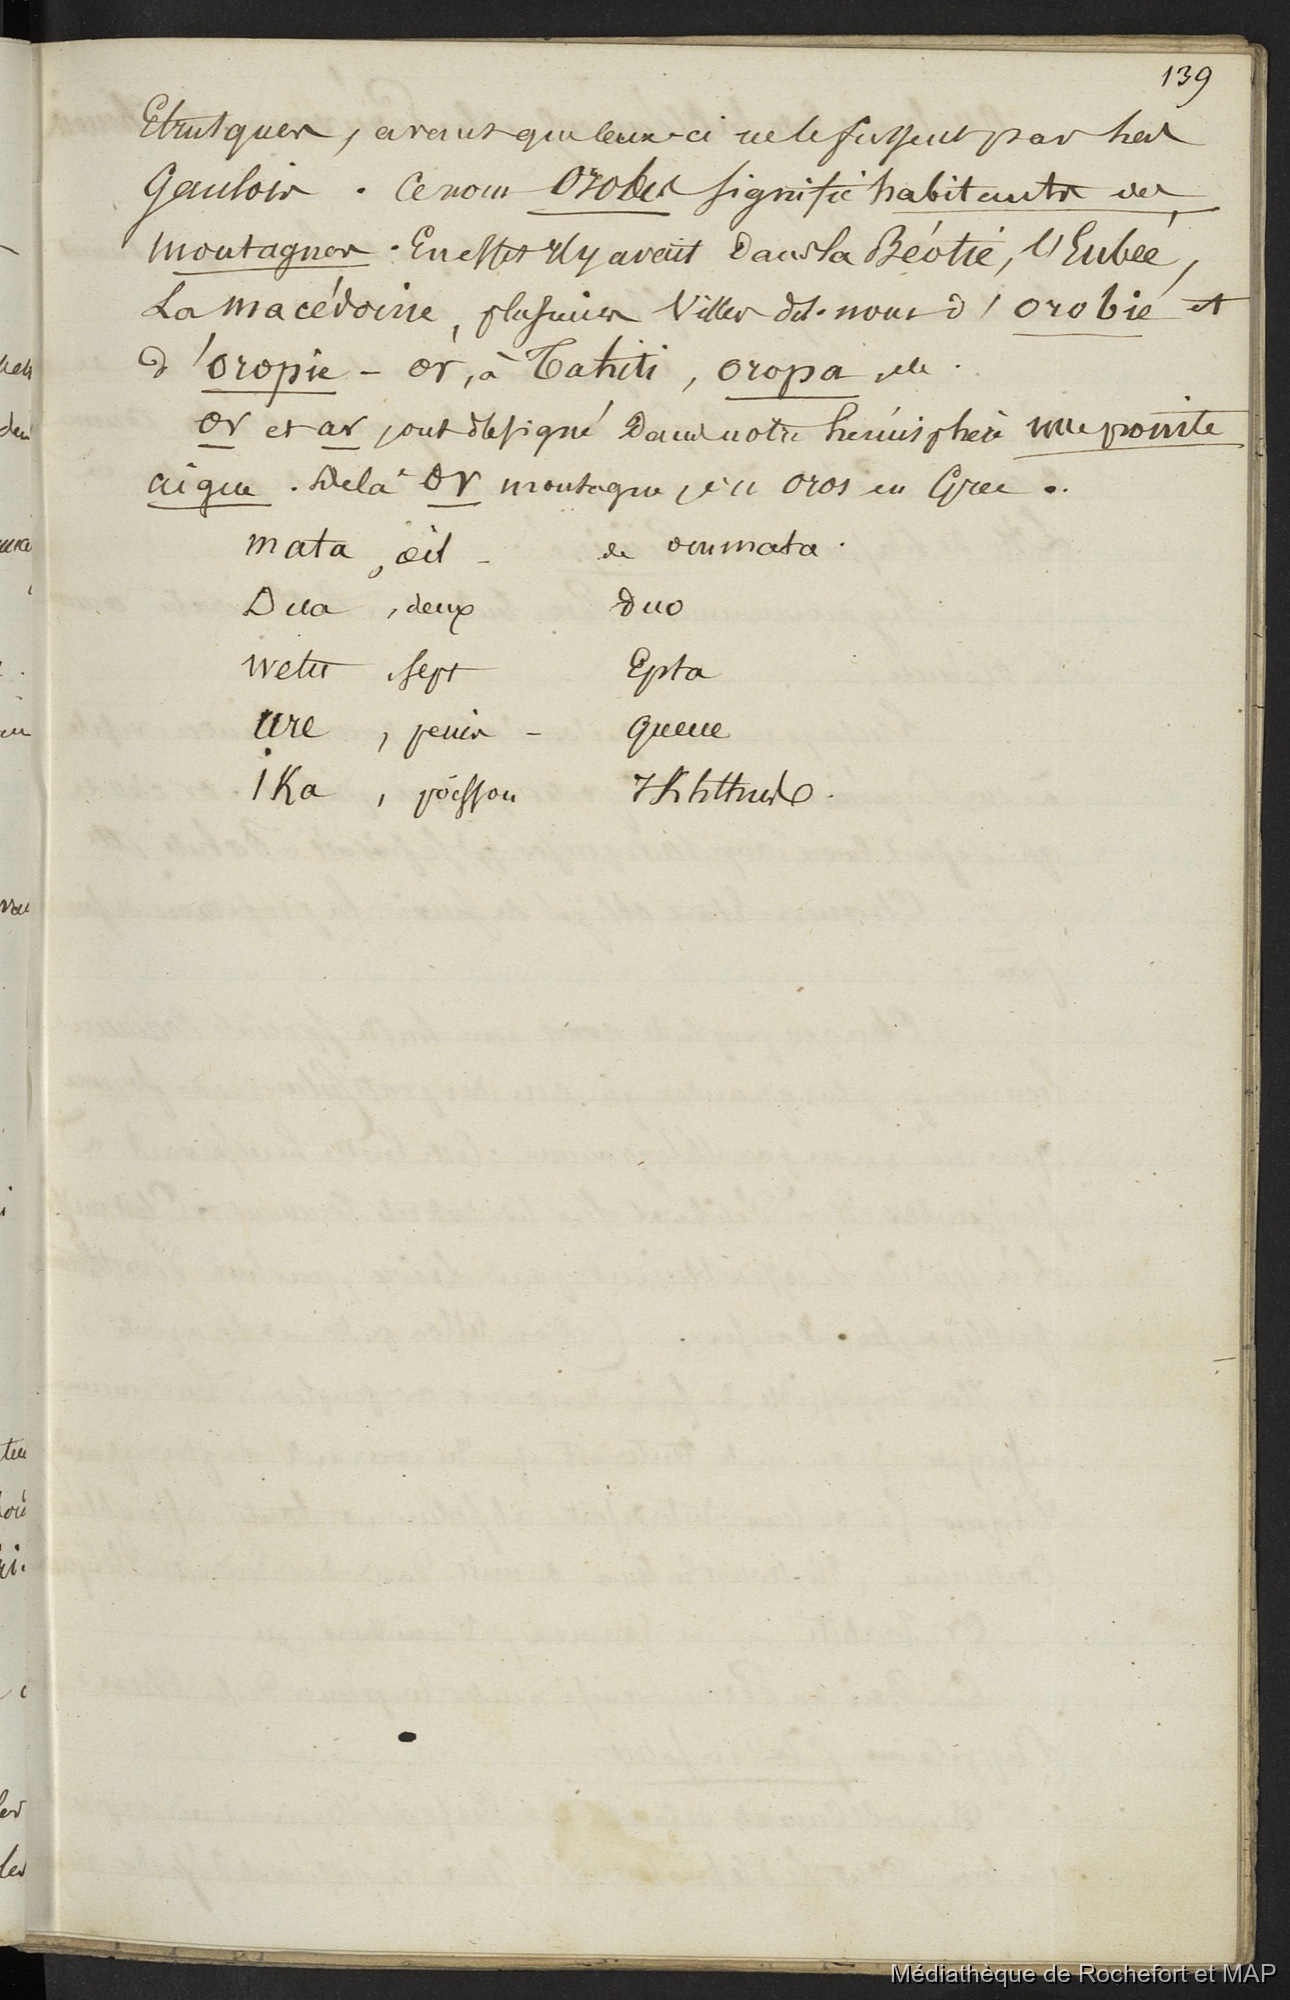 139
Etrusques, avant que ceux-ci ne le fussent par les
Gaulois. Ce nom Orobes signifie habitants des
montagnes. En effet il y avait dans la Béotie, l'Eubée,
La Macédoine, plusieurs Villes du nom d'orobie et
d'oropie - or, à Tahiti, oropa, etc.
or et ar ont désigné dans notre hémisphère une pointe
aigue. De là or montagne, et oros en Grec.
mata, œil - de ommata.
Dua, deux duo
wetu, sept Epta
ure, penis - queue
ika, poisson
Médiathèque de Rochefort et MAP